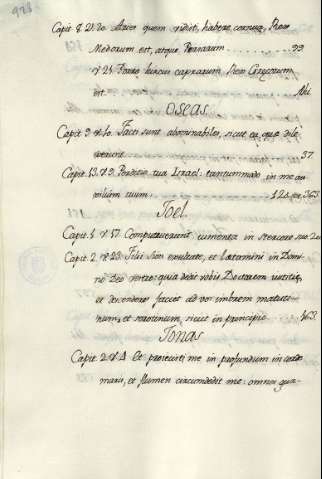 928
Capit 8 v 20 Aries quem vidisti, habere cornua, Rex
Medorum est, atque Persarum ........ 99
v 21 Porro hircus caprarum Rex Grecorum
est ........ Ibi
Oseas
Capit 9 v 10. Facti sunt abominabiles, sicut ea, quæ dile
xerunt ........ 37
Capit. 13. v 9. Perditio tua Israel: tantummodo in me au
xilium tuum ........ 363
Joel.
Capit. 1 v 17 Computruerunt jumenta in stercore suo
Capit. 2 v 23 Filii Sion exultate, et lætamini in Domi
no Deo vestro: quia dedit vobis Doctorem justitiæ,
et descendere faciet ad vos imbrem matuti
num, et serotinum, sicut in principio. 163.
Jonas
Capit 2 v 4 Et projecisti me in profundum in corde
maris, et flumen circumdedit me: omnes gur-